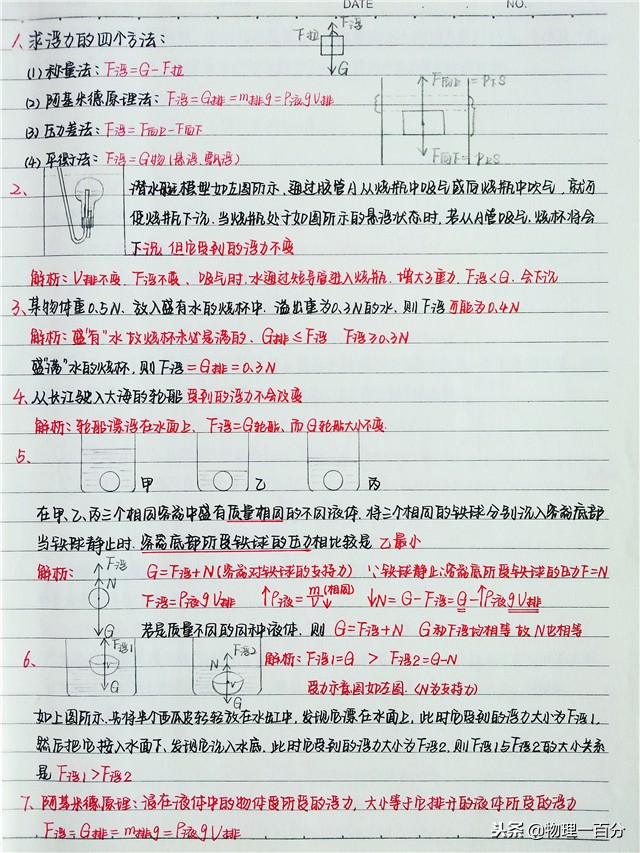 DATE . . NO.
1、求浮力的四个方法：
F浮
F拉
G
(1) 称量法：F浮=G-F拉
(2) 阿基米德原理法：F浮=G排=m排g=ρ液gV排
(3) 压力差法：F浮=F向上-F向下
(4) 平衡法：F浮=G物(悬浮、飘浮)
F向上=P下S
F向下=P上S
2、潜水艇模型如左图所示、通过胶管A从烧瓶中吸气或向烧瓶中吹气，就可
使烧瓶下沉.当烧瓶处于如图所示的悬浮状态时,若从A管吸气,烧杯将会
下沉 但它受到的浮力不变
解析：V排不变、F浮不变、吸气时,水通过短导管进入烧瓶.增大了重力,F浮<G.会下沉
3、某物体重0.5N、放入盛有水的烧杯中.溢出重为0.3N的水、则F浮可能为0.4N
解析：盛"有"水 故烧杯未必是满的、G排≤F浮 F浮≥0.3N
盛"满"水的烧杯,则F浮=G排=0.3N
4、从长江驶入大海的轮船受到的浮力不会改变
解析：轮船漂浮在水面上、F浮=G轮船、而G轮船大小不变.
5、
甲 乙 丙
在甲、乙、丙三个相同容器中盛有质量相同的不同液体.将三个相同的铁球分别沉入容器底部
当铁球静止时.容器底部所受铁球的压力相比较是 乙最小
解析： F浮 N G G=F浮+N(容器对铁球的支持力) ∵铁球静止∴容器底所受铁球的压力F=N
F浮=ρ液gV排 ↑ρ液=m(相同)/V↓ ↓N=G-F浮=G-↑ρ液gV排
若是质量不同的同种液体、则 G=F浮+N G和F浮均相等 故N也相等
6、
F浮1 G
F浮2 N G
解析：F浮1=G > F浮2=G-N
受力示意图如左图.(N为支持力)
如上图所示、先将半个西瓜皮轻轻放在水缸中，发现它漂在水面上，此时它受到的浮力大小为F浮1,
然后把它按入水面下、发现它沉入水底.此时它受到的浮力大小为F浮2,则F浮1与F浮2的大小关系
是 F浮1>F浮2
7、阿基米德原理：浸在液体中的物体受所受的浮力，大小等于它排开的液体所受的浮力
F浮=G排=m排g=ρ液gV排
头条 @物理一百分